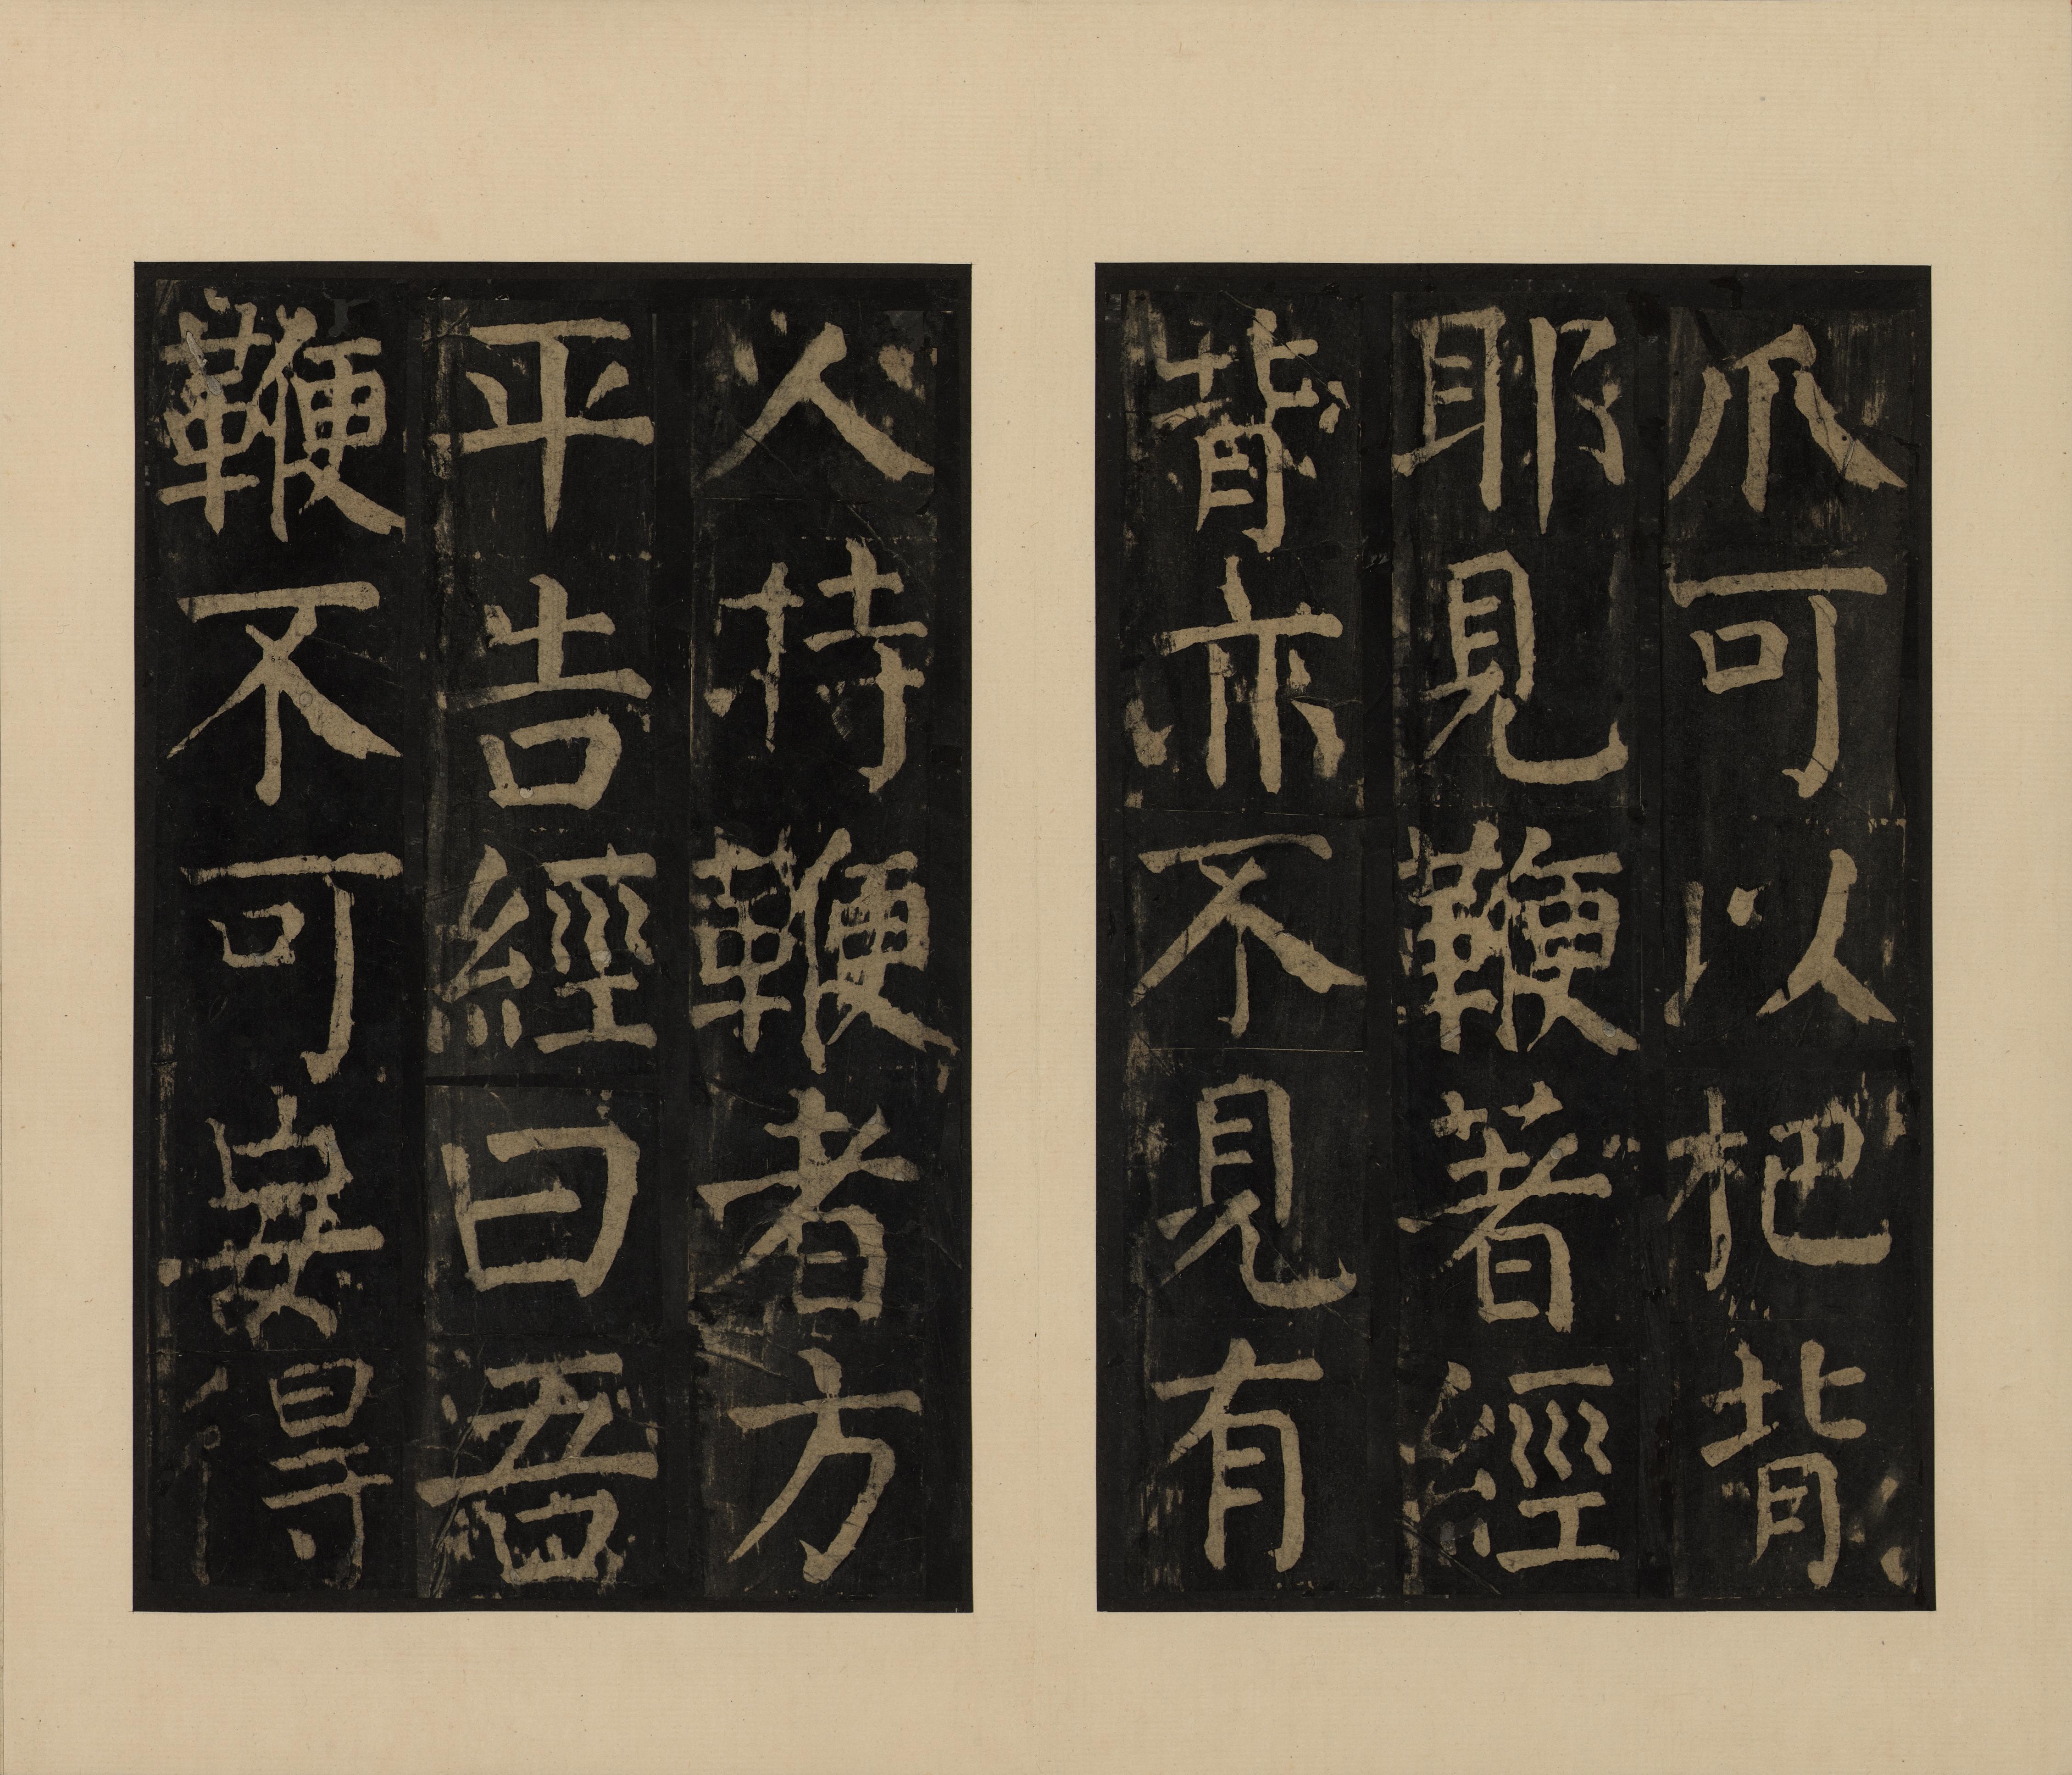 爪可以杷背
耶見鞭著經
背亦不見有
人持鞭者方
平告經曰吾
鞭不可妄得